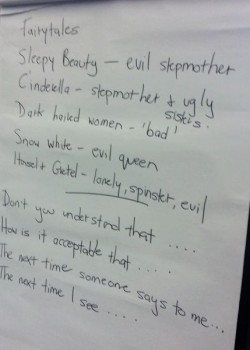 Fairytales
Sleepy Beauty – evil stepmother
Cinderella – stepmother & ugly sisters.
Dark haired women – 'bad'
Snow White – evil queen
Hansel & Gretel – lonely, spinster, evil
Don't you understand that ....
How is it acceptable that ....
The next time someone says to me...
The next time I see ....